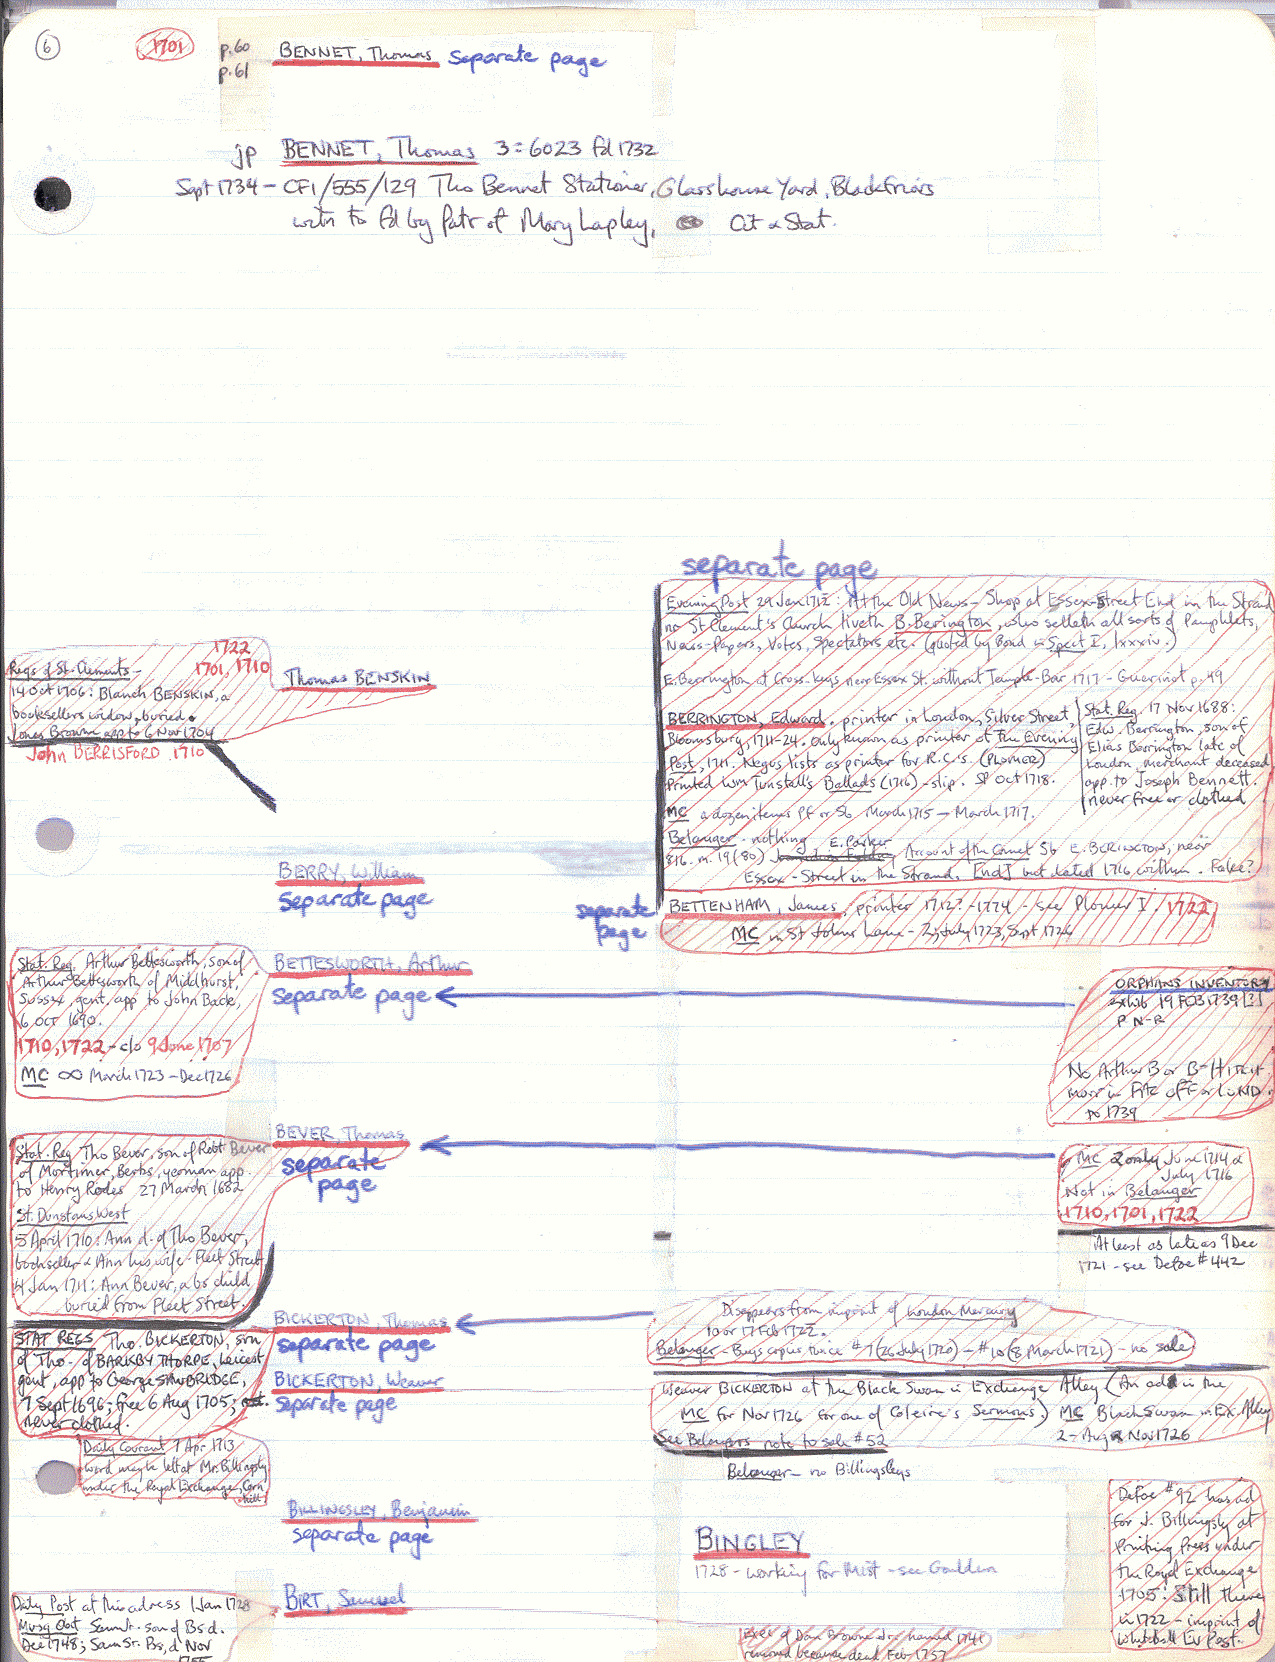 6
1701
p.60
p.61
BENNET, Thomas separate page
jp BENNET, Thomas 3=6023 fd 1732
Sept 1734 - CF1/555/129 Tho Bennet Stationer, Glasshouse Yard, Blackfriars
fd by Patr of Mary Lapley, Cit & Stat.
separate page
Evening Post 29 Jan 1712: At the Old News-Shop at Essex-Street End in the Strand
nr St Clement's Church liveth B. Berington, who selleth all sorts of Pamphlets,
News-Papers, Votes, Spectators etc. (quoted by Bond in Spect I, lxxxiv.)
E. Berrington at Cross-keys near Essex St. without Temple-Bar 1717 - Guerinot p.49
BERRINGTON, Edward. printer in London, Silver Street,
Bloomsbury, 1711-24. Only known as printer of The Evening
Post, 1711. Negus lists as printer for R.C.'s. (PLOMER)
Printed Wm Tunstall's Ballads (1716) - slip. SP Oct 1718.
Stat. Reg. 17 Nov 1688:
Edw. Berrington, son of
Elias Berrington late of
London, merchant deceased
app. to Joseph Bennett.
never free or clothed
MC a dozen items Pf or Sb March 1715 - March 1717.
Belanger - nothing E. Parker
816. m. 19 (80) Account of the Comet Sb E. BERINGTON, near
Essex-Street in the Strand. [Ind] but dated 1716 within. False?
separate page
BETTENHAM, James, printer 1712?-1774 - see Plomer I. 1722
MC in St Johns Lane - July 1723, Sept 1726
1722
1701, 1710
Regs of St. Clements -
14 Oct 1706: Blanch BENSKIN, a
booksellers widow, buried.
Jones Browne app to 6 Nov 1704
Thomas BENSKIN
John BERRISFORD 1710
BERRY, William
separate page
Stat. Reg. Arthur Bettesworth, son of
Arthur Bettesworth of Middhurst,
Sussex, gent, app to John Back,
6 OCT 1690.
1710, 1722 - c/o 9 June 1707
MC ∞ March 1723 - Dec 1726
BETTESWORTH, Arthur
separate page
ORPHANS INVENTORY
exhib 19 FEB 1739 [?]
P N-R
No Arthur B or B-Hitch
more in
to 1739
Stat. Reg Tho Bever, son of Robt Bever
of Mortimer, Berks, yeoman app.
to Henry Rodes 27 March 1682
St. Dunstans West
5 April 1710: Ann d. of Tho Bever,
bookseller & Ann his wife - Fleet Street
4 Jan 1711: Ann Bever, a bs child
buried from Fleet Street.
BEVER, Thomas
separate
page
MC 2 only June 1714 &
July 1716
Not in Belanger
1710, 1701, 1722
At least as late as 9 Dec
1721 - see Defoe #442
STAT REGS Tho. BICKERTON, son
of Tho- of BARKSBY THORPE, Leicest
gent, app to George SAWBRIDGE,
7 Sept 1696; free 6 Aug 1705;
never clothed.
BICKERTON, Thomas
separate page
Disappears from imprint of London Mercury
10 or 17 Feb 1722.
Belanger - Buys copies twice #7 (26 July 1720) - #10 (8 March 1721) - no sale
BICKERTON, Weaver
separate page
Weaver BICKERTON at the Black Swan in Exchange Alley (An ad in the
MC for Nov 1726 for one of Coleire's Sermons) MC Black Swan in Ex. Alley
2 - Aug & Nov 1726
See Belangers note to sale #52
Daily Courant 7 Apr 1713
word may be left at Mr. Billingsly
under the Royal Exchange, Corn
hill
Belanger - no Billingsleys
BILLINGSLEY, Benjamin
separate page
BINGLEY
1728 - working for Mist - see Goulden
Defoe #92 has ad
for J. Billingsly at
Printing Press under
the Royal Exchange
1705: Still there
in 1722 - imprint of
Whitehall Ev Post.
Daily Post at this address 1 Jan 1728
Musg Obit Sam Jr. son of Bs d.
Dec 1748; Sam Sr. Bs, d Nov
1755
BIRT, Samuel
Exec of Dan Browne Jr. named 1741
removed because dead Feb 1757